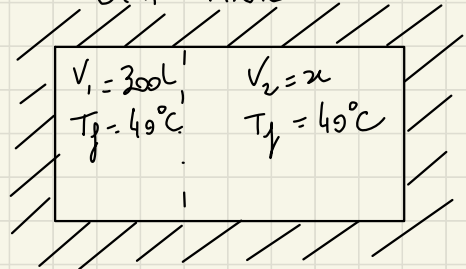 V₁ = 300L
T_f = 40°C
V₂ = x
T_f = 40°C